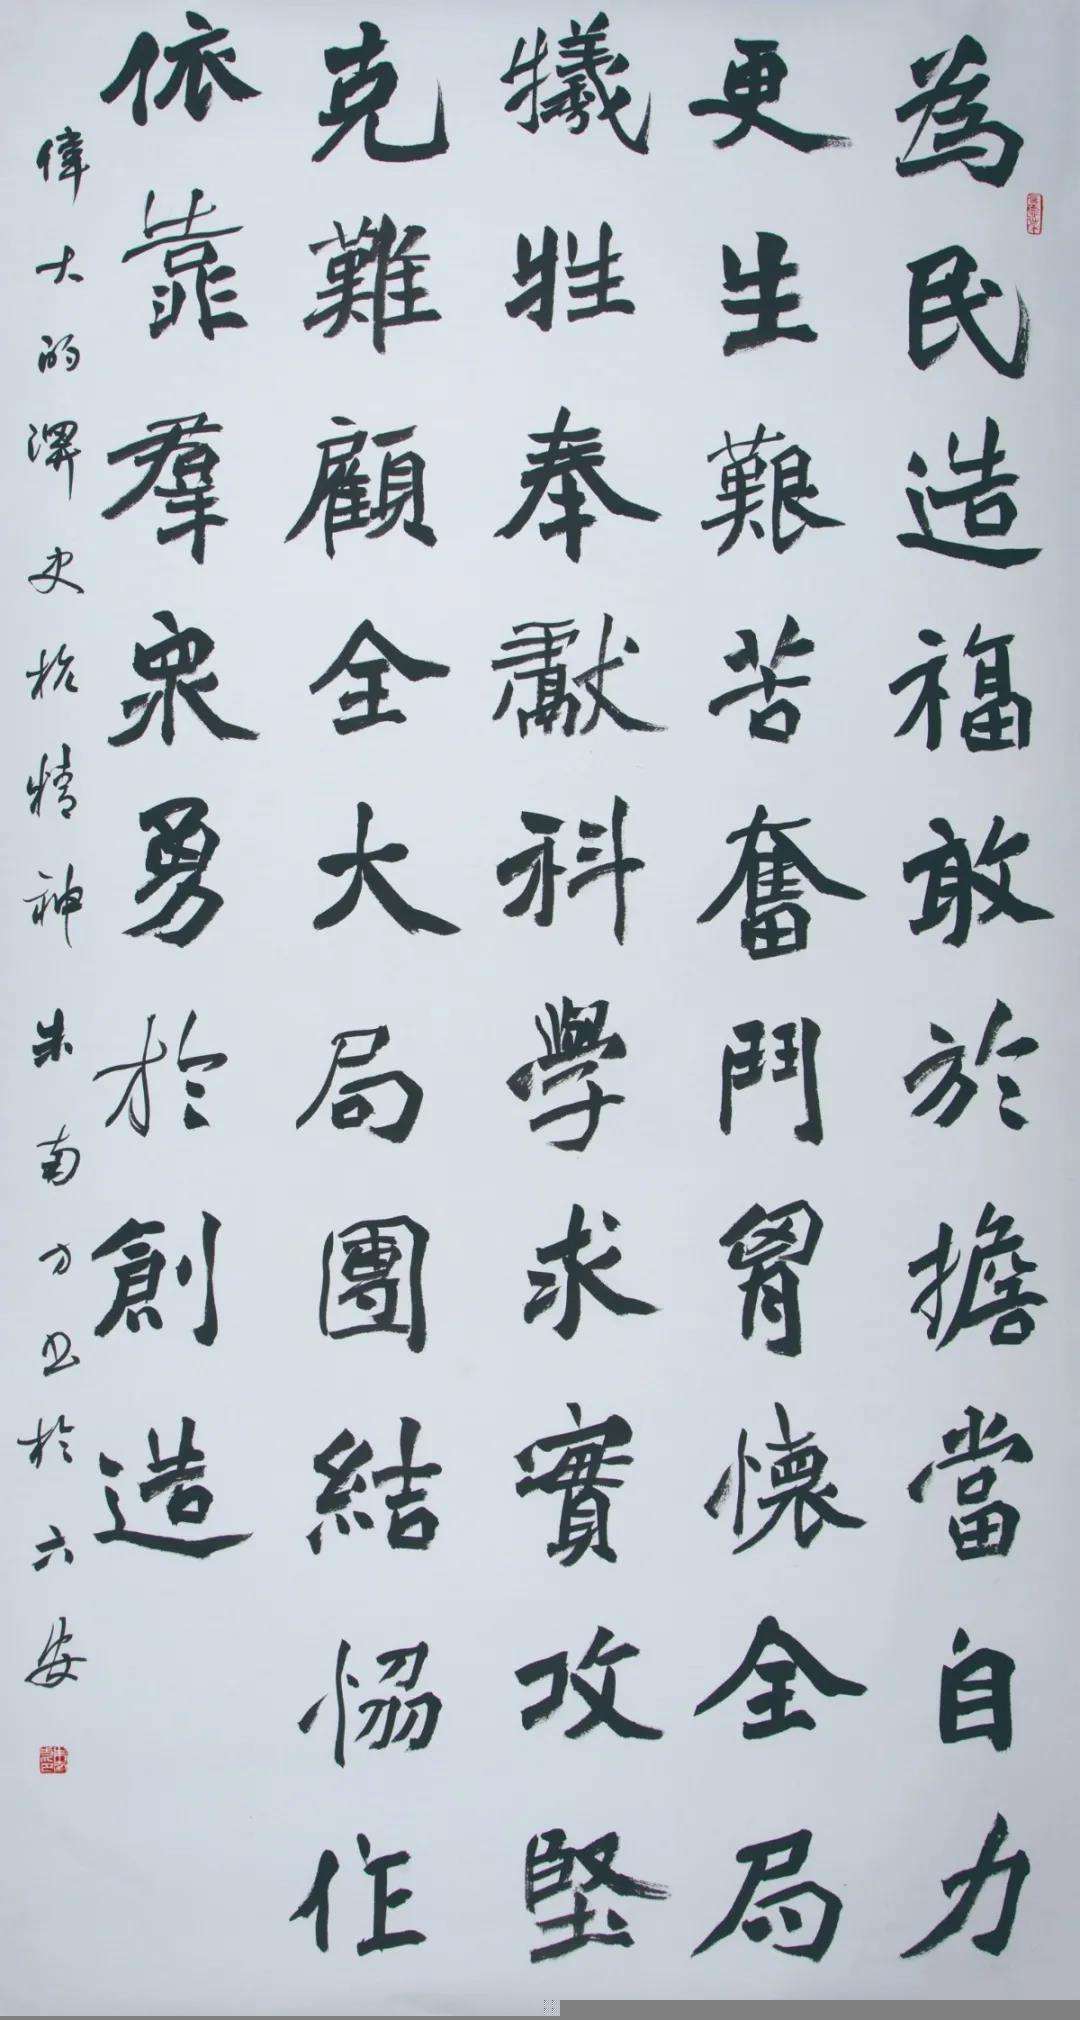 為民造福敢於擔當自力
更生艱苦奮鬥胷懷全局
犧牲奉獻科學求實攻堅
克難顧全大局團結協作
依靠羣衆勇於創造
偉大的淠史杭精神 朱南方书於六安